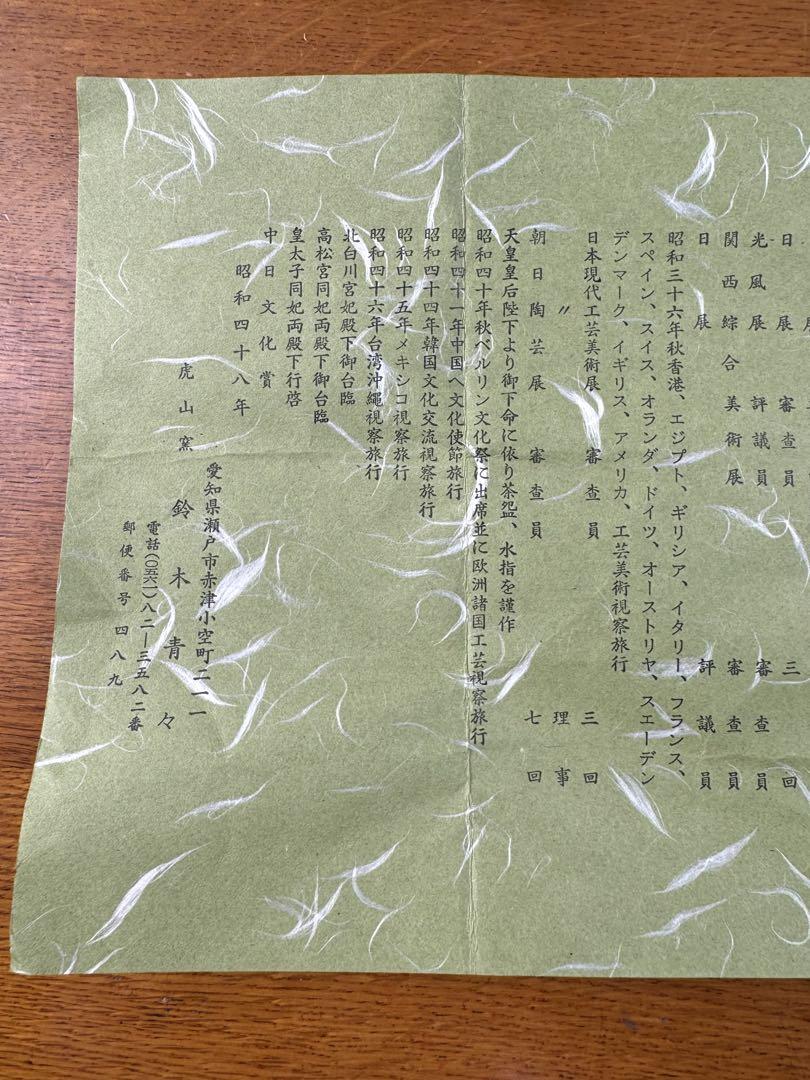 日展 審査員 三回
光風展 評議員 審査員
関西綜合美術展 審査員
日展 評議員
昭和三十六年秋香港、エジプト、ギリシア、イタリー、フランス、
スペイン、スイス、オランダ、ドイツ、オーストリヤ、スエーデン
デンマーク、イギリス、アメリカ、工芸美術視察旅行
日本現代工芸美術展 審査員 三回
〃 理事
朝日陶芸展 審査員 七回
天皇皇后陛下より御下命に依り茶盌、水指を謹作
昭和四十年秋ベルリン文化祭に出席並に欧洲諸国工芸視察旅行
昭和四十一年中国へ文化使節旅行
昭和四十四年韓国文化交流視察旅行
昭和四十五年メキシコ視察旅行
昭和四十六年台湾沖縄視察旅行
北白川宮妃殿下御台臨
高松宮同妃両殿下御台臨
皇太子同妃両殿下行啓
中日文化賞
昭和四十八年
愛知県瀬戸市赤津小空町二一一
虎山窯 鈴木青々
電話(〇五六一)八二―三五八二番
郵便番号 四八九